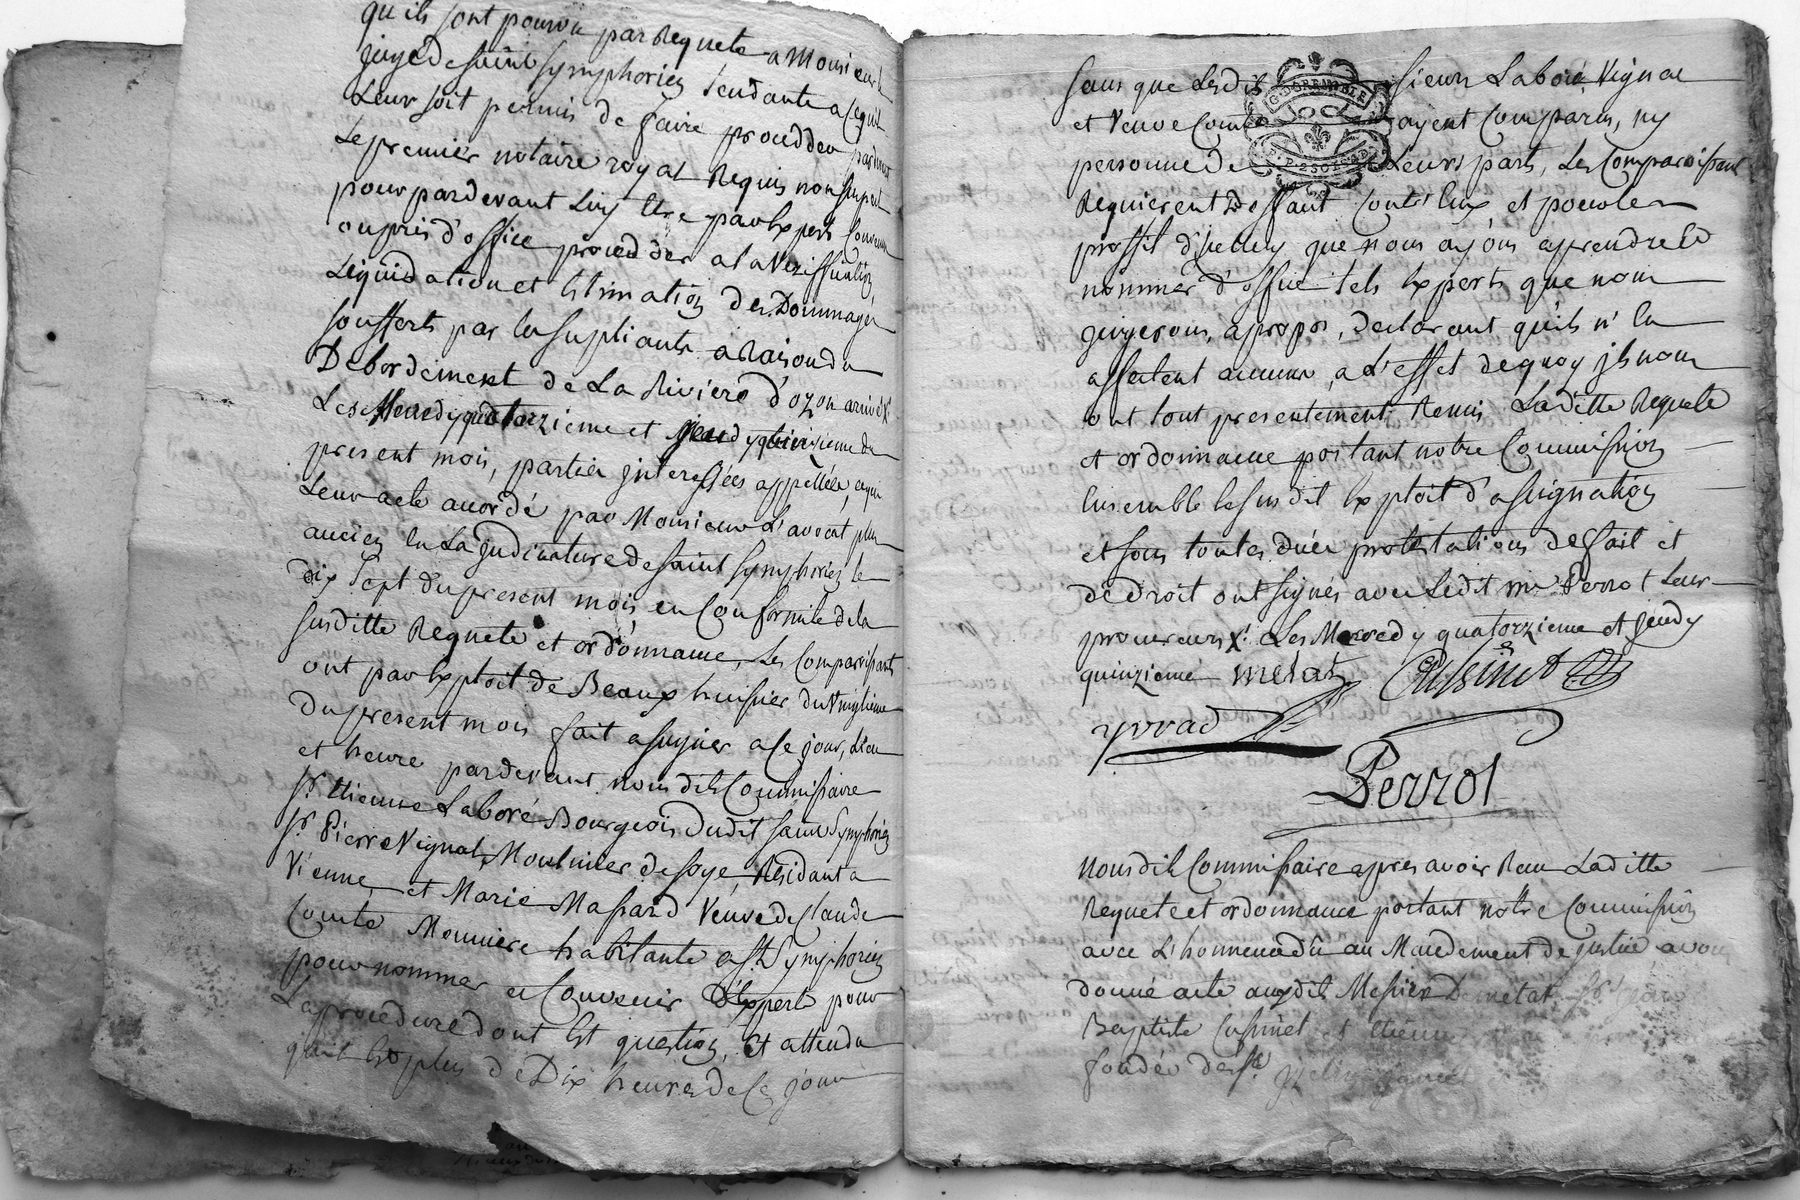 qu'ils sont pourvu par Requete a Monsieur le
juge de saint Symphorien tendante a ce quil
Leur soit permis de faire procedder pardevant
Le premier notaire royal Requis non suspect
pour pardevant Luy Etre par Experts Convenus
ou pris d'office procedder a la Veriffication,
Liquidation et Estimation des Dommages
soufferts par les supliants a Raison du
Debordement de La Riviere d'ozon arrivé X
Les Mercredy quatorzieme et Jeudy quinzieme du
present mois, parties interessées appellées, ce qui
Leur acte accordé par Monsieur L'avocat plus
ancien en La judicature de saint Symphorien le
dix sept du present mois, en Conformité de la
susditte Requete et ordonnance, Les Comparoissants
ont par Exploit de Beaux huissier du Vingtieme
Du present mois fait assigner a Ce jour, Lieu
et heure pardevant nousdit Commissaire
sr. Etienne Laboré Bourgeois dudit saint Symphorien
sr. Pierre Vignat Moulinier de soye, Residant a
Vienne, et Marie Massard Veuve de Claude
Comte Meuniere habitante a st. Symphorien
pour nommer et Convenir d'Expert pour
La procedure dont Est question, Et attendu
quil Est plus de Dix heures de Ce jour
sans que Lesdit sieurs Laboré, Vignat
et Veuve Comte ayent Comparus, ny
GDGRENOBLE
personne de Leurs parts, Les Comparoissant
Requierent Deffaut Contr'Eux, et pour le
proffit d'icelluy que nous ayons a prendre et
nommer d'office tels Experts que nous
jugerons, a propos, declarant qu'ils n'En
affectent aucuns, a L'effet de quoy ils nous
ont tout presentement Remis Laditte Requete
et ordonnance portant notre Commission
Ensemble le susdit Exploit d'assignation
et sous toutes dües protestations de fait et
de Droit ont signés avec Ledit me Perrot Leur
procureur X. Les Mercredy quatorzieme et jeudy
quinzieme metat Cussinet
yvrad
Perrot
Nousdit Commissaire apres avoir Reçu Laditte
Requete et ordonnance portant notre Commission
avec L'honneur dû au Mandement de justice, avons
donné acte auxdits Messire Demetat sr. jean
Baptiste Cussinet et Etienne
fondée de sr.